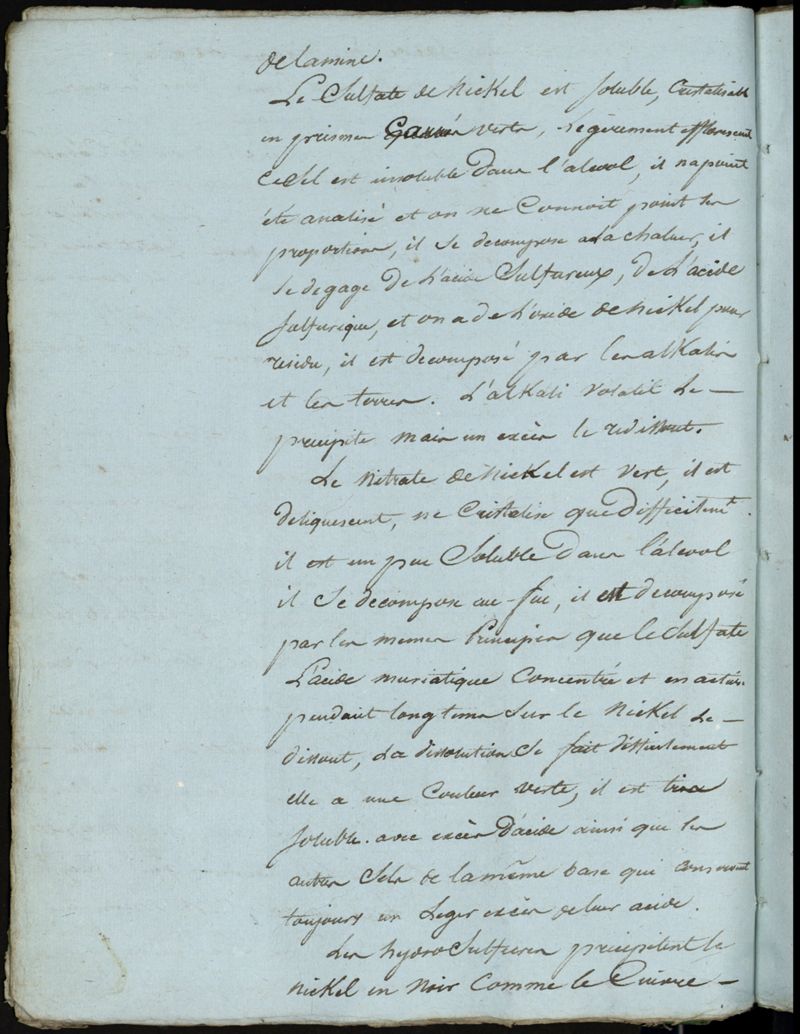 de la mine.
Le Sulfate de Nickel est soluble, Cristalisable
en prismes Carrés verts, Légèrement efflorescent
Ce Sel est insoluble Dans l'alcool, il na point
été analisé et on ne Connoit point les
proportions, il Se decompose a la chaleur, il
Se degage De L'acide Sulfureux, De L'acide
Sulfurique, et on a de L'oxide de Nickel pour
residu, il est decomposé par les alkalis
et les terres. L'alkali Volatil Le —
precipite mais un excès le redissout.
Le Nitrate de Nickel est vert, il est
deliquescent, ne Cristalise que Difficilemt.
il est un peu Soluble Dans l'alcool
il Se decompose au feu, il est decomposé
par les memes Principes que le Sulfate
L'acide muriatique Concentré et en
pendant longtems Sur le Nickel Le —
dissout, La dissolution Se fait difficilement
elle a une Couleur verte, il est très
Soluble avec excès D'acide ainsi que les
autres Sels de la même base qui conservent
toujours un Leger excès de leur acide.
Les hydroSulfures precipitent le
Nickel en Noir Comme le Cuivre —